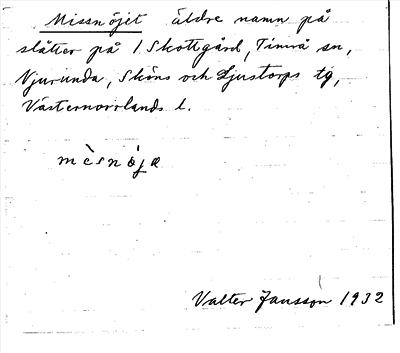 Missnöjet äldre namn på
slåtter på 1 Skottgård, Timrå sn,
Njurunda, Sköns och Ljustorps tg,
Västernorrlands l.
mèsnöja
Valter Jansson 1932